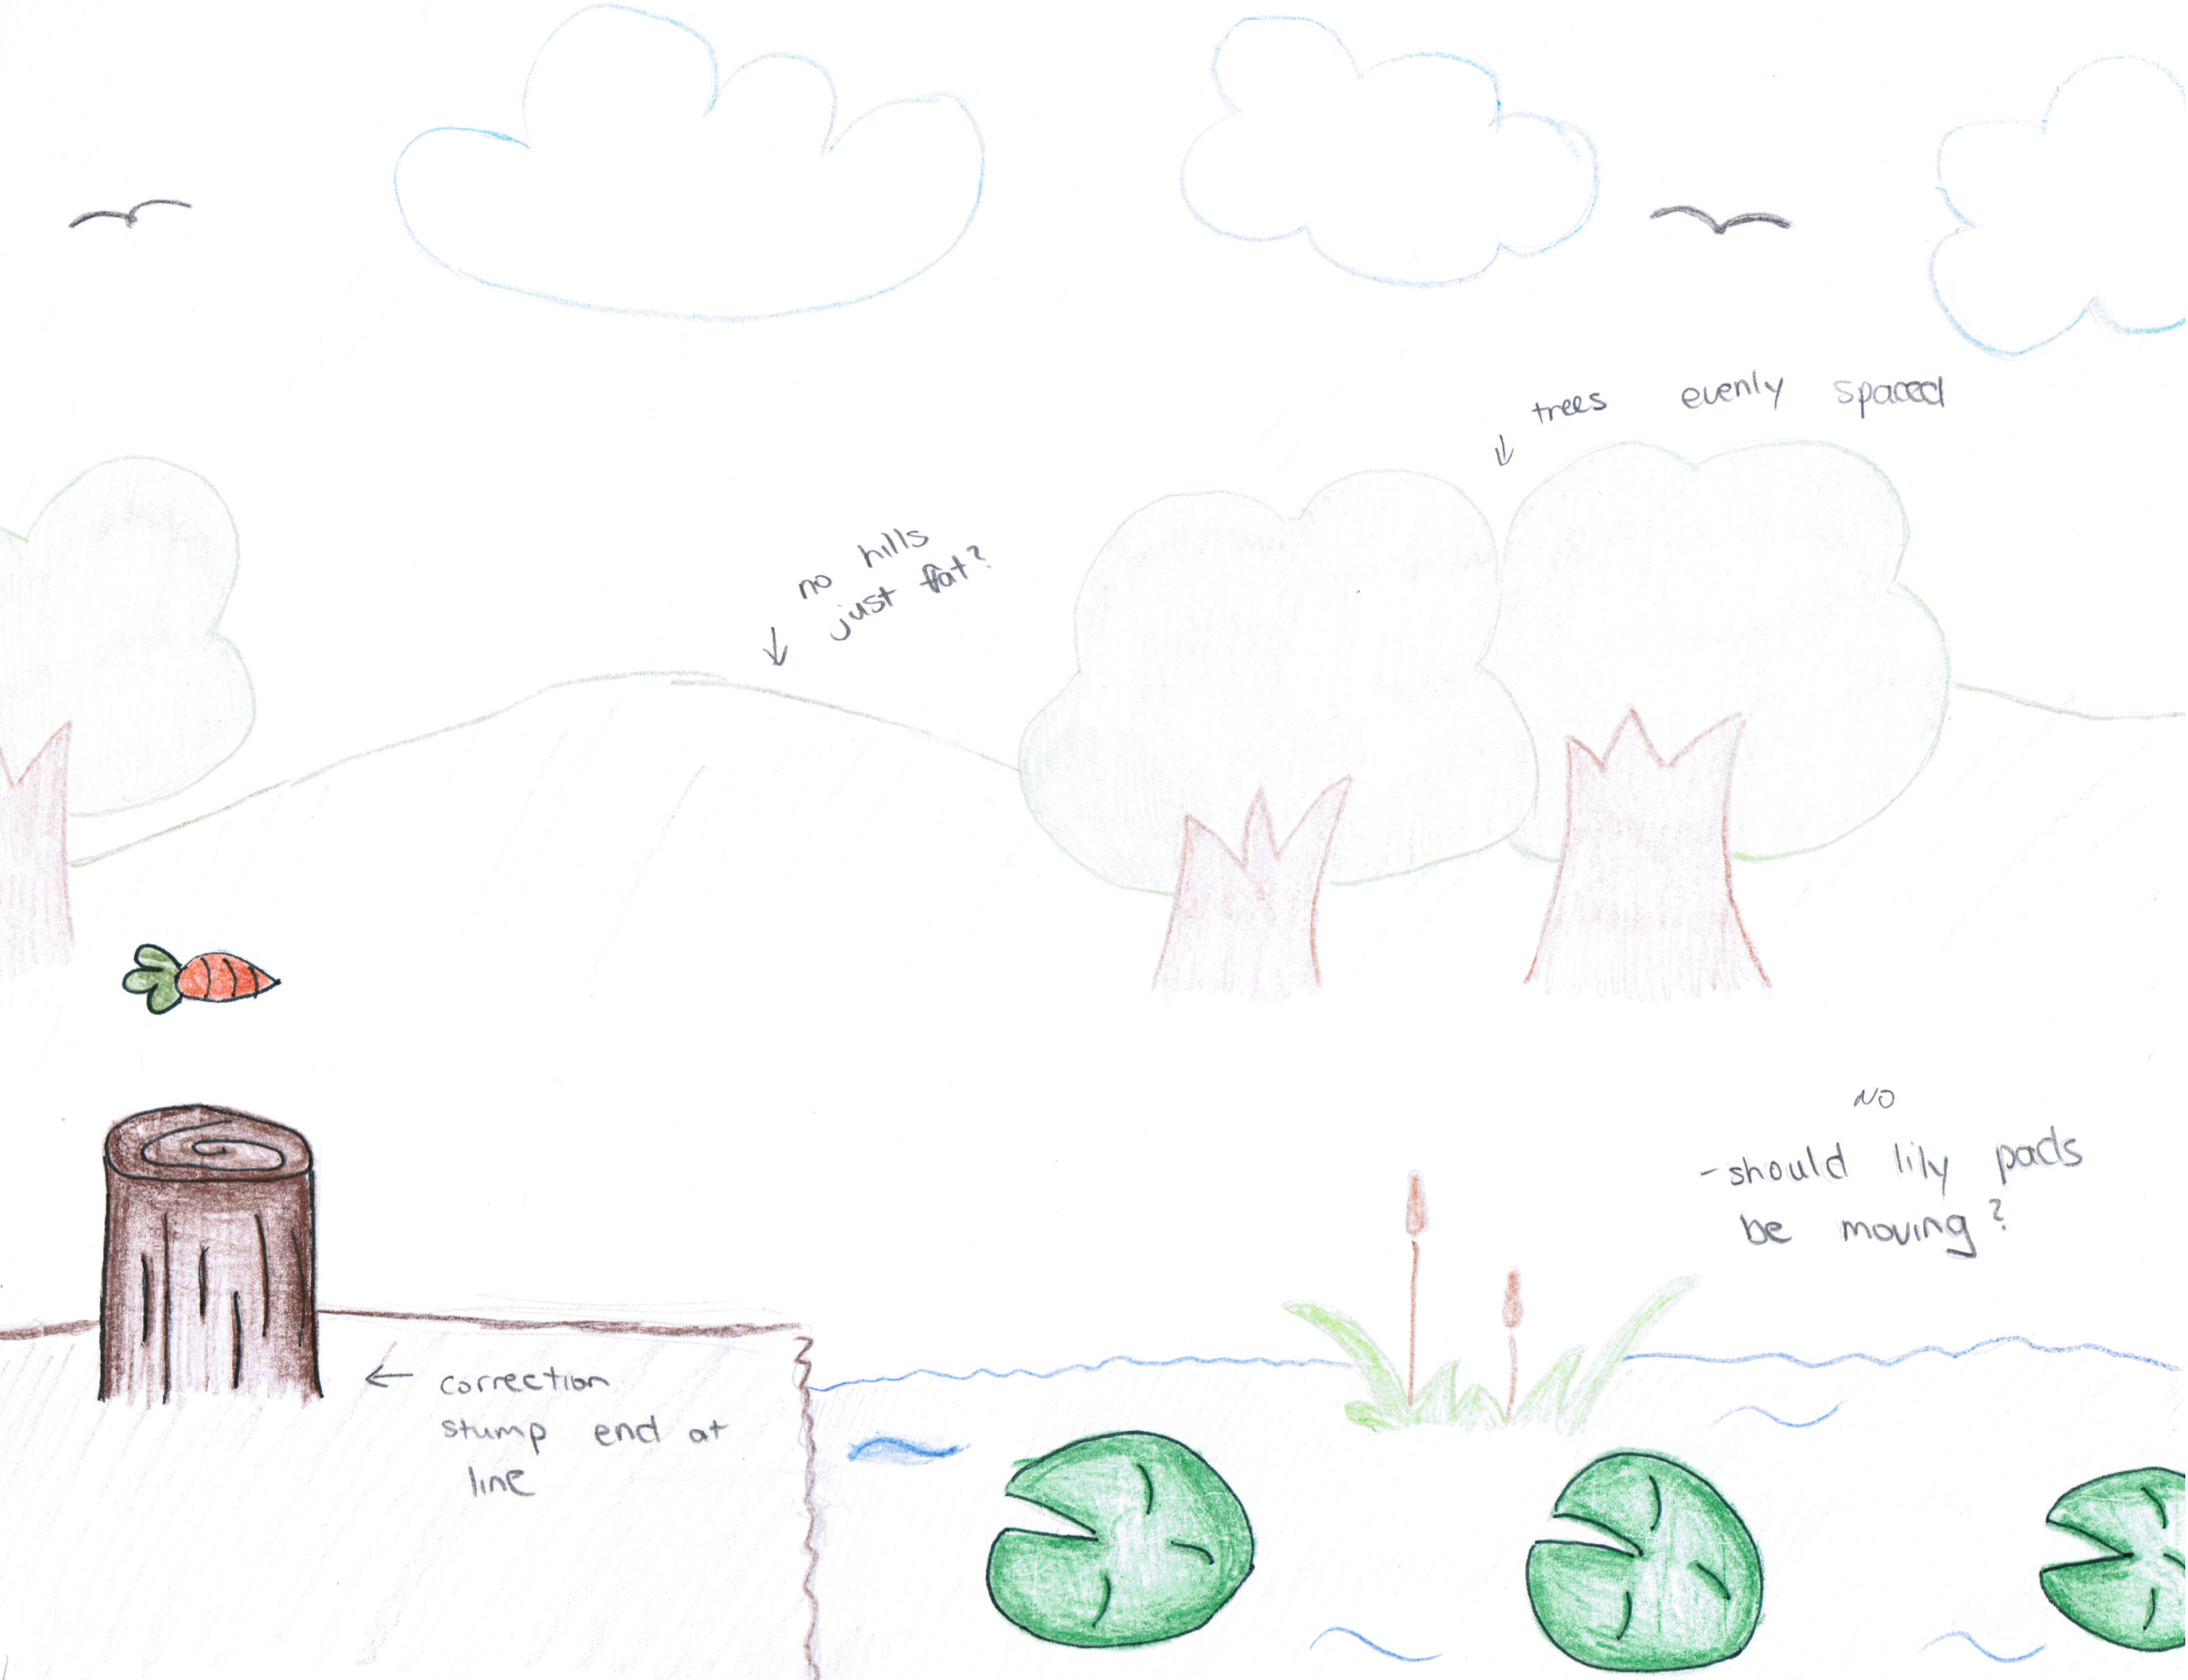 trees evenly spaced
no hills
just flat?
NO
-should lily pads
be moving?
correction
stump end at
line